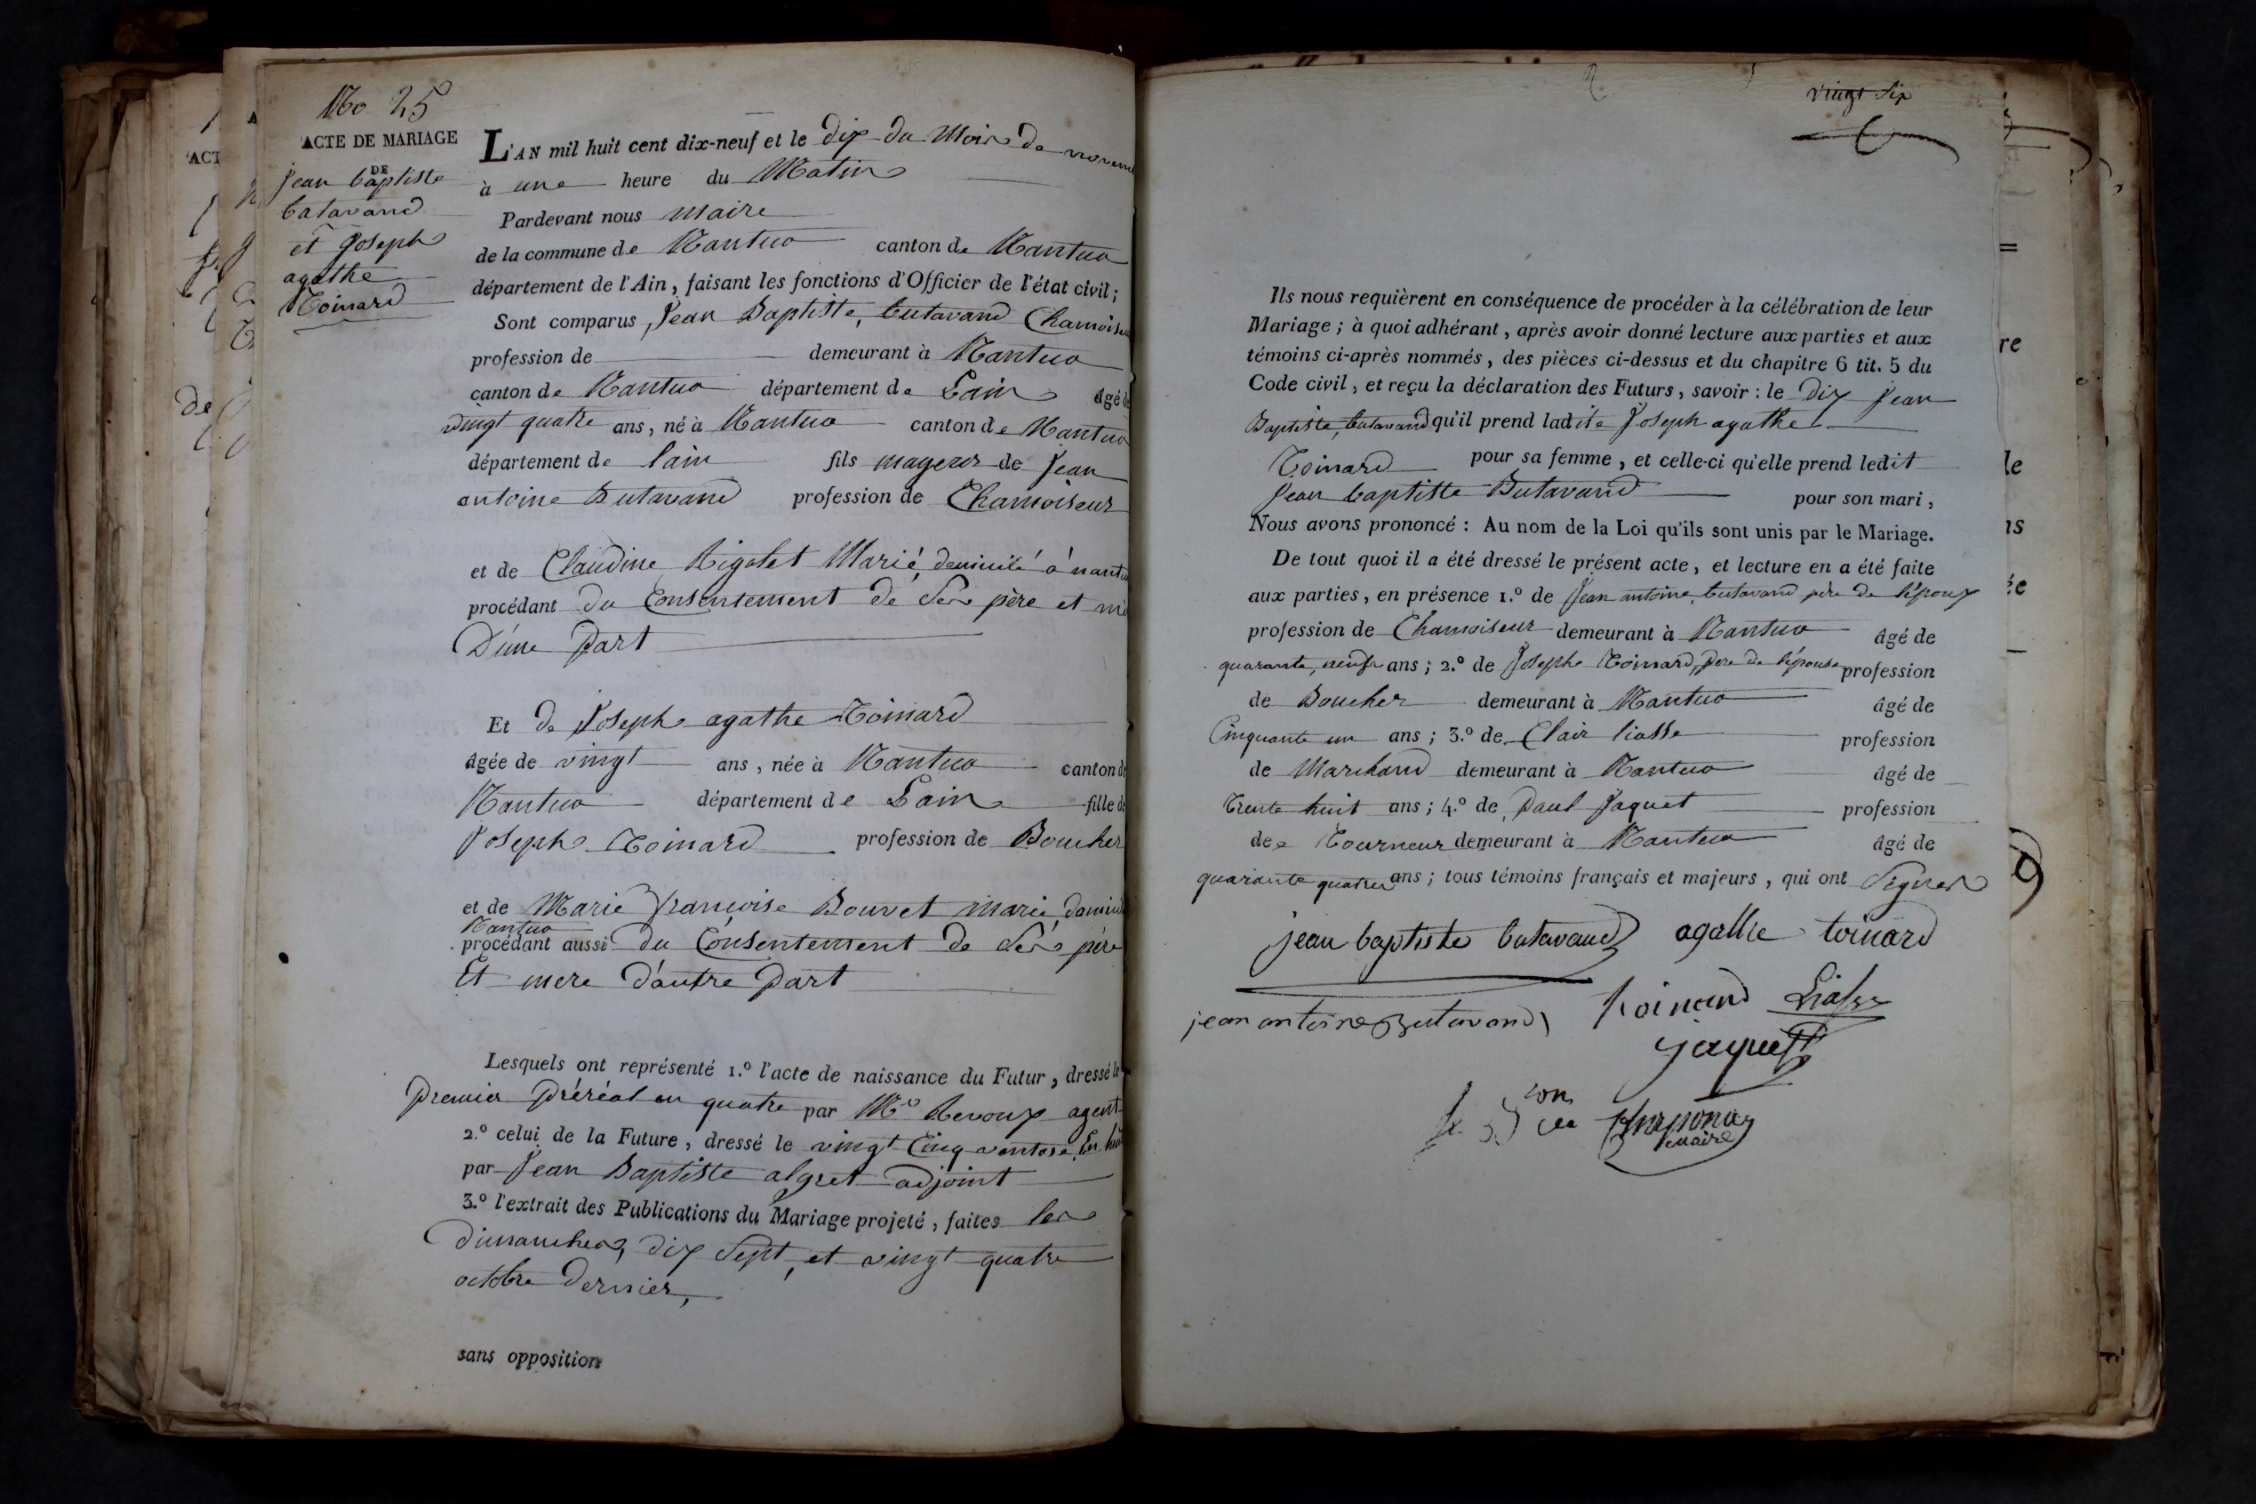 No 25
ACTE DE MARIAGE
DE
jean baptiste
butavand
et joseph
agathe
Toinard
L'AN mil huit cent dix-neuf et le dix du Mois de novem
à une heure du Matin
Pardevant nous maire
de la commune de Nantua canton de Nantua
département de l'Ain, faisant les fonctions d'Officier de l'état civil;
Sont comparus, Jean Baptiste, butavand Chamoiseu
profession de demeurant à Nantua
canton de Nantua département de Lain âgé de
vingt quatre ans, né à Nantua canton de Nantua
département de lain fils mageur de Jean
antoine Butavand profession de Chamoiseur
et de Claudine Rigotet Marié, domicilé à nantu
procédant du Consentement de Ses père et mè
D'une Part
Et de Joseph agathe Toinard
âgée de vingt ans, née à Nantua canton de
Nantua département de Lain fille de
Joseph Toinard profession de Boucher
et de Marie françoise Bouvet marié, domicil
Nantua
procédant aussi du Consentement de Ses père
Et mere d'autre Part
Lesquels ont représenté 1.º l'acte de naissance du Futur, dressé le
premier préréal an quatre par Mr Revoux agent
2.º celui de la Future, dressé le vingt Cinq ventose En huit
par Jean Baptiste algret adjoint
3.º l'extrait des Publications du Mariage projeté, faites les
dimanches, dix Sept, et vingt quatre
octobre dernier,
sans opposition
vingt Six
Ils nous requièrent en conséquence de procéder à la célébration de leur
Mariage; à quoi adhérant, après avoir donné lecture aux parties et aux
témoins ci-après nommés, des pièces ci-dessus et du chapitre 6 tit. 5 du
Code civil, et reçu la déclaration des Futurs, savoir: le dix Jean
Baptiste, butavand qu'il prend ladite Joseph agathe
Toinard pour sa femme, et celle-ci qu'elle prend ledit
Jean baptiste Butavand pour son mari,
Nous avons prononcé: Au nom de la Loi qu'ils sont unis par le Mariage.
De tout quoi il a été dressé le présent acte, et lecture en a été faite
aux parties, en présence 1.º de Jean antoine butavand père de lépoux
profession de Chamoiseur demeurant à Nantua âgé de
quarante, neuf ans; 2.º de Joseph Toinard, père de lépouse profession
de Boucher demeurant à Nantua âgé de
Cinquante un ans; 3.º de Clair liasse profession
de Marchand demeurant à Nantua âgé de
Trente huit ans; 4.º de Paul Jaquet profession
de Tourneur demeurant à Nantua âgé de
quarante quatre ans; tous témoins français et majeurs, qui ont Signer
jean baptiste butavand agathe toinard
jean antoine Butavand toinard Liasse
jaquet
maire